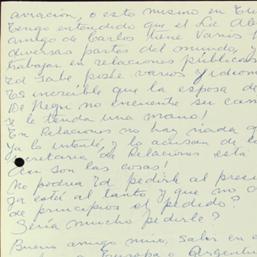 aviación, o esto mismo en Eu
Tengo entendido que el Lic Ale
amigo de Carlos tiene varios
diversas partes del mundo, y
trabajar en relaciones públicas
Ud sabe posee varios idiom
Es increíble que la esposa d
De Negri no encuentre su cam
y le tienda una mano!
En Relaciones no hay nada q
Ya lo intenté, y la acusan de la
cretaria de Relaciones está
Así son las cosas!
No podría Ud pedirle al presi
Ya está al tanto y que no o
de principios el pedido?
Sería mucho pedirle?
Bueno amigo mio, salir en e
Europa o Argentin